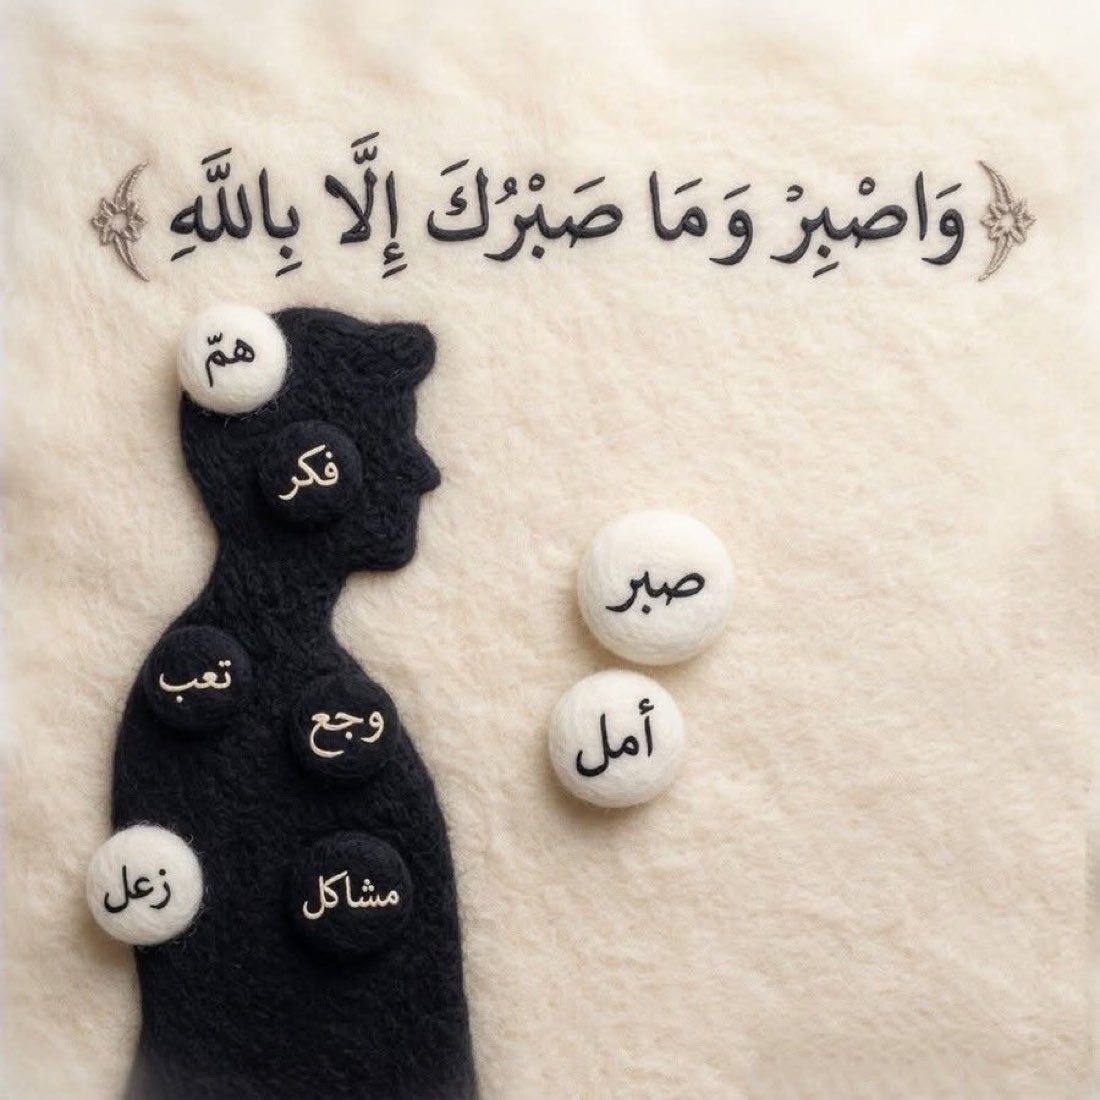 ﴿وَاصْبِرْ وَمَا صَبْرُكَ إِلَّا بِاللَّهِ﴾
همّ
فكر
صبر
تعب
وجع
أمل
زعل
مشاكل